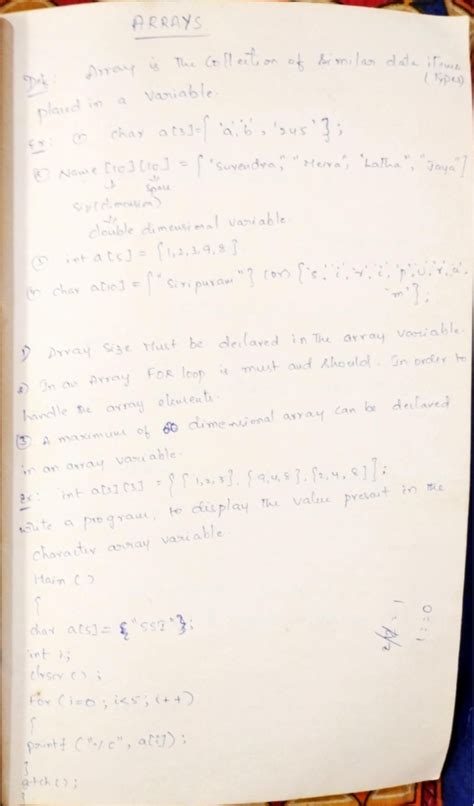 ARRAYS
Def: Array is the collection of similar data items
(types)
placed in a variable.
Ex: (1) char a[3]={'a','b','245'};
(2) Name [10][10] = {"Surendra", "Meera", "Latha", "Jaya"}
size(dimension)
double dimensional variable.
(3) int a[5] = {1,2,3,9,8}
(4) char a[10] = {"Siripuram"} (or) {'s','i','r','i','p','u','r','a',
'm'};
1) Array size must be declared in the array variable.
2) In an Array FOR loop is must and should. In order to
handle the array elements.
(3) A maximum of 60 dimensional array can be declared
in an array variable.
Ex: int a[3][3] = {{1,2,3}, {9,4,8}, {2,4,8]};
write a program, to display the value present in the
character array variable.
Main ()
{
char a[5]= {"SSI"};
int i;
clrscr();
for (i=0; i<5; i++)
{
printf ("%c", a[i]);
}
getch();
}